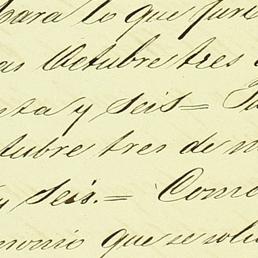 para lo que fure
as Octubre tres
nta y seis= 
tubre tres de m
y Seis.= Come
monio que se solic